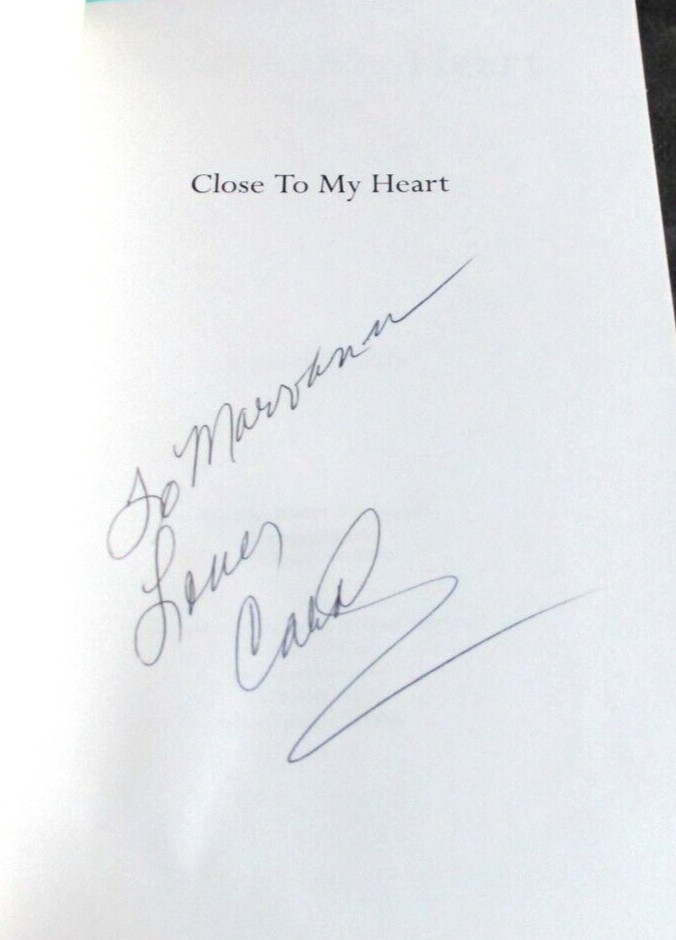 Close To My Heart
To Maryann
Love,
Carol